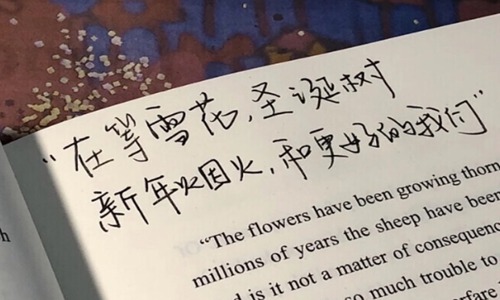 “在等雪花,圣诞树
新年烟火,和更好的我们”
“The flowers have been growing thorn
millions of years the sheep have been
is it not a matter of consequenc
so much trouble to
rfare
h